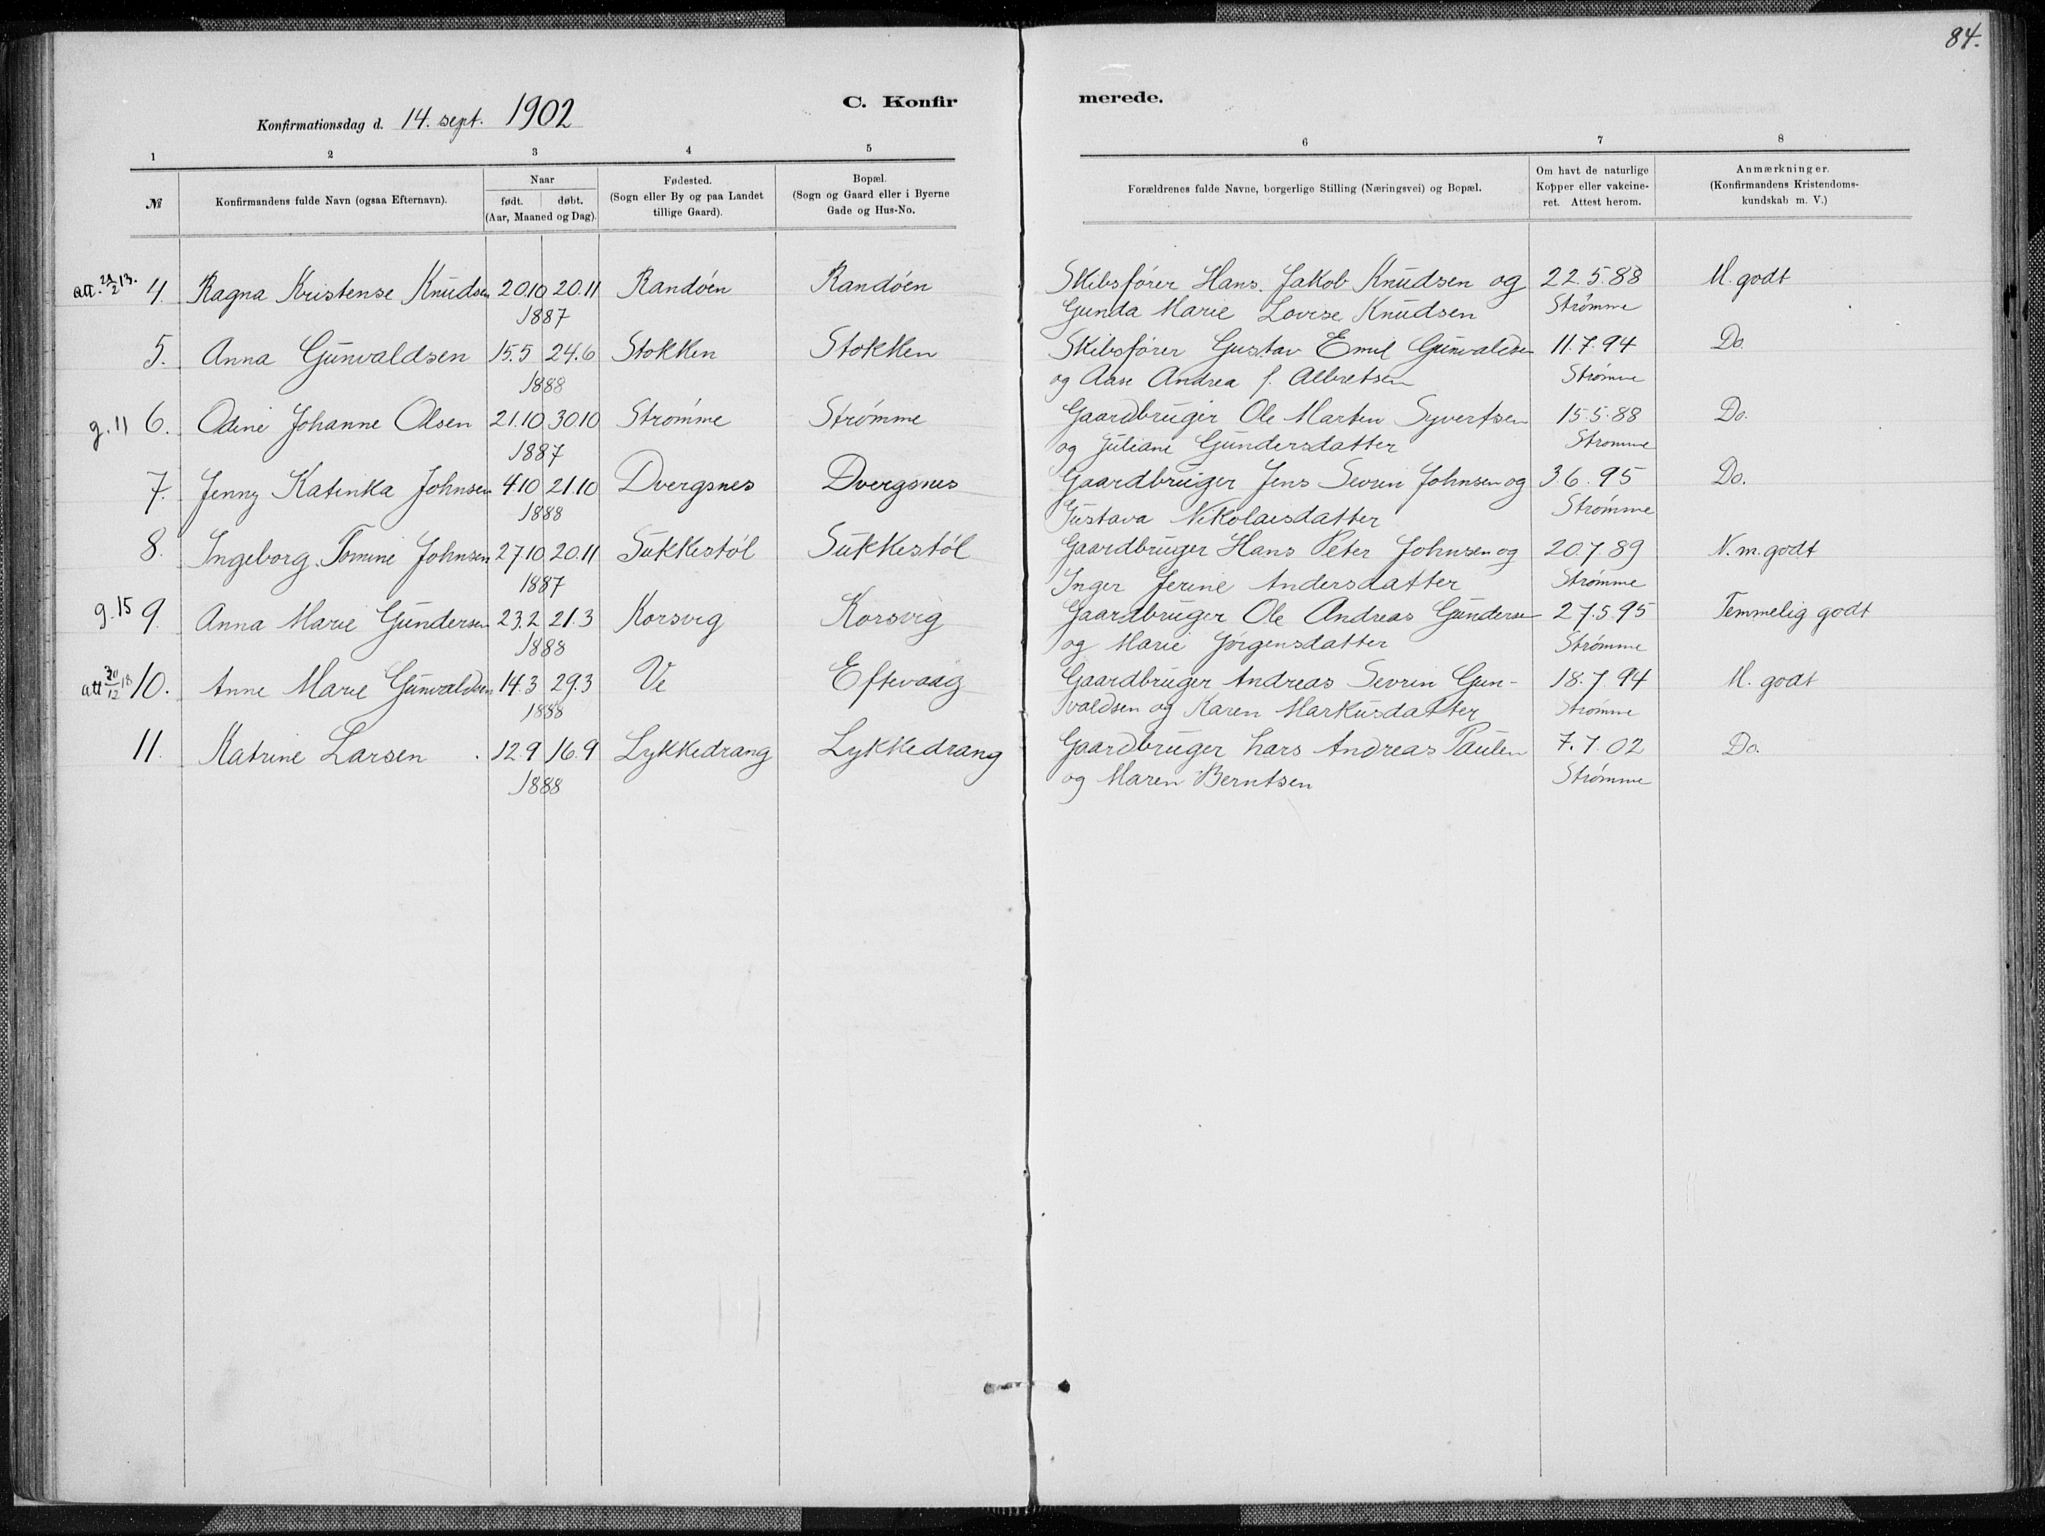 84.
C. Konfirmerede.
Konfirmationsdag d. 14. sept. 1902
1 2 3 4 5 6 7 8
№ Konfirmandens fulde Navn (ogsaa Efternavn). Naar født. døbt. (Aar, Maaned og Dag). Fødested. (Sogn eller By og paa Landet tillige Gaard). Bopæl. (Sogn og Gaard eller i Byerne Gade og Hus-No. Forældrenes fulde Navne, borgerlige Stilling (Næringsvei) og Bopæl. Om havt de naturlige Kopper eller vakcineret. Attest herom. Anmærkninger. (Konfirmandens Kristendomskundskab m. V.)
att. 24/2 13. 4. Ragna Kristense Knudsen 20.10 20.11 Randöen Randöen Skibsfører Hans Jakob Knudsen og 22.5.88 M. godt
1887 Gunda Marie Lovise Knudsen Strømme
5. Anna Gunvaldsen 15.5 24.6 Stokken Stokken Skibsfører Gustav Emil Gunvaldsen 11.7.94 Do.
1888 og Aase Andrea f. Albretsen Strømme
g. 11 6. Odine Johanne Olsen 21.10 30.10 Strømme Strømme Gaardbruger Ole Martin Syvertsen 15.5.88 Do.
1887 og Juliane Gundersdatter Strømme
7. Jenny Katinka Johnsen 4.10 21.10 Dvergsnes Dvergsnes Gaardbruger Jens Sevrin Johnsen og 3.6.95 Do.
1888 Gustava Nikolaisdatter Strømme
8. Ingeborg Tomine Johnsen 27.10 20.11 Sukkestøl Sukkestøl Gaardbruger Hans Peter Johnsen og 20.7.89 N. m. godt
1887 Inger Jerine Andersdatter Strømme
g. 15 9. Anna Marie Gundersen 23.2 21.3 Korsvig Korsvig Gaardbruger Ole Andreas Gundersen 27.5.95 Temmelig godt
1888 og Marie Jørgensdatter Strømme
att 30/12 18 10. Anne Marie Gunvaldsen 14.3 29.3 Ve Eftevaag Gaardbruger Andreas Sevrin Gun- 18.7.94 M. godt
1888 valdsen og Karen Markusdatter Strømme
11. Katrine Larsen 12.9 16.9 Lykkedrang Lykkedrang Gaardbruger Lars Andreas Paulen 7.7.02 Do.
1888 og Maren Berntsen Strømme